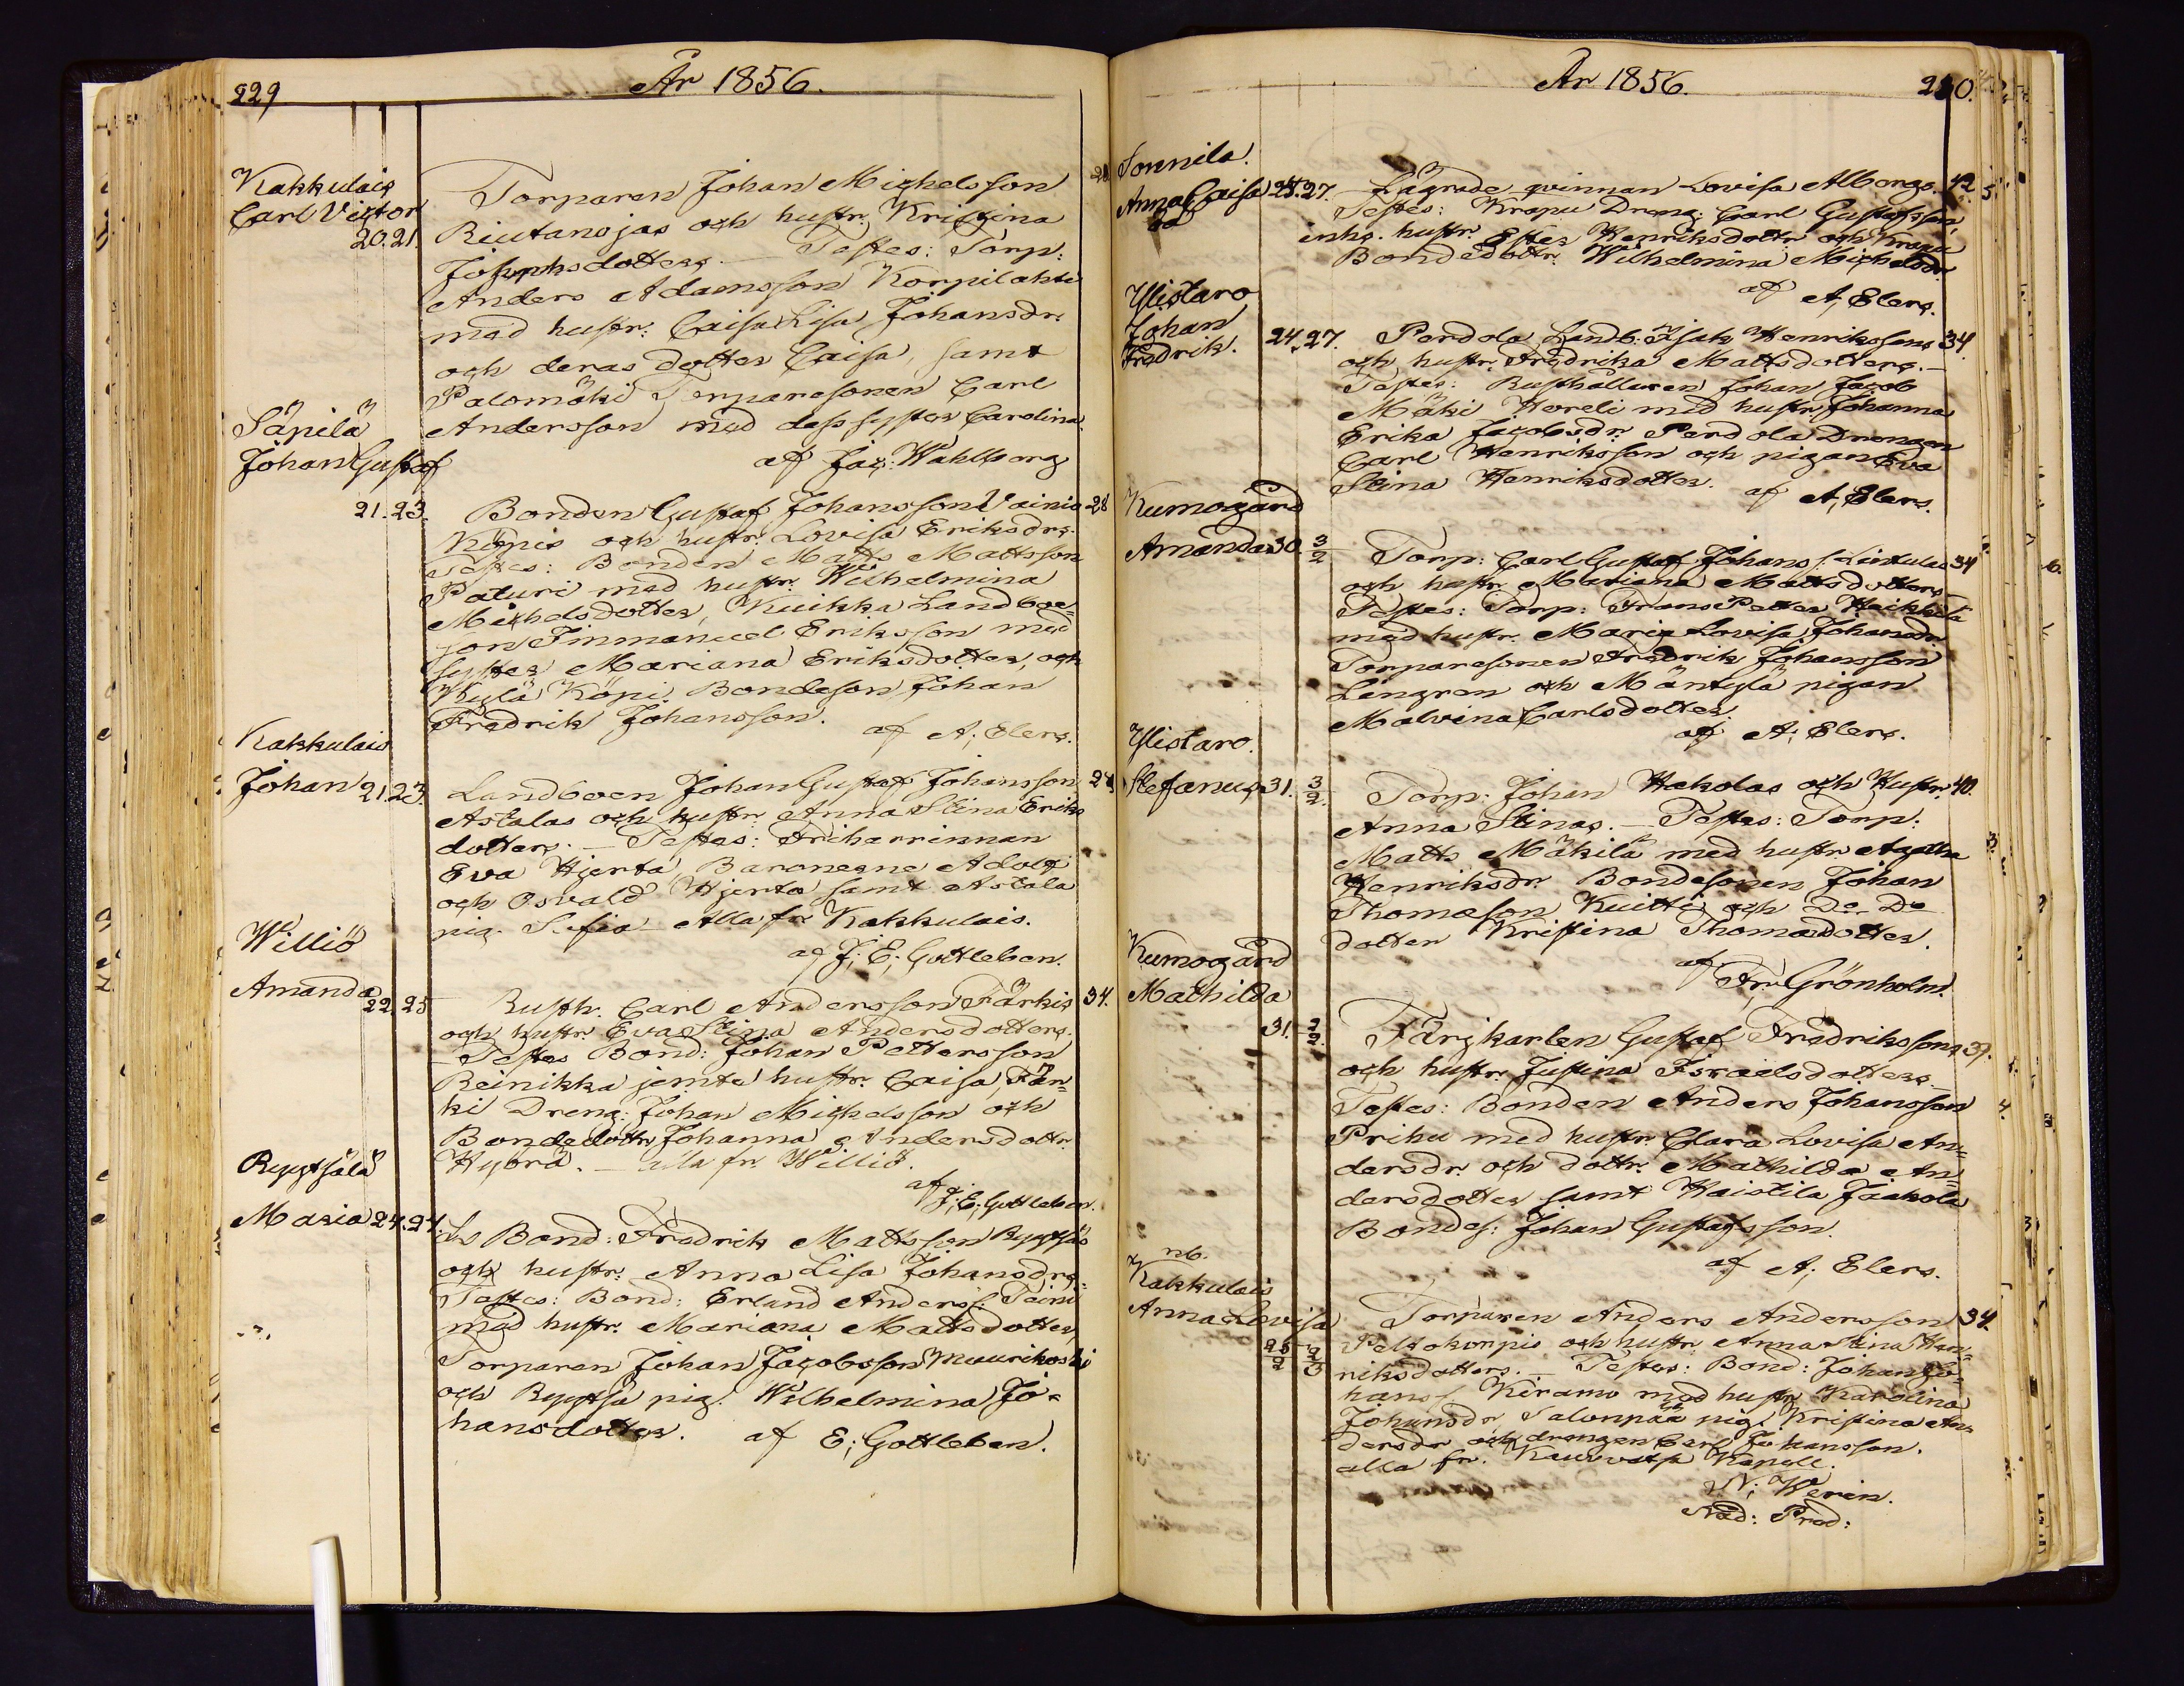 229.
År 1856.
Kakkulais
Carl Victor
20. 21.
Torparen Johan Michelsson 28
Riutanojas och hustr. Kristina
Josephsdotters. — Testes: Torp:
Anders Adamsson Korpilahti
med hustr: Caisa Lisa Johansdr.
och deras dotter Caisa, samt
Palomäki Torparesonen Carl
Andersson med dess syster Carolina.
af Jac: Wahlberg
Säpilä
Johan Gustaf
21. 23.
Bonden Gustaf Johansson Vainio 28
Köpis och hustr. Lovisa Eriksdrs.
Testes: Bonden Matts Mattsson
Paturi med hustr. Wilhelmina
Michelsdotter, Kuikka Landboe-
son Immanuel Eriksson med
syster Mariana Eriksdotter, och
Kylä Köpi Bondeson Johan
Fredrik Johansson.
af A; Elers.
Kakkulais
Johan 21. 23.
Landboen Johan Gustaf Johansson 24
Astalas och hustr. Anna Stina Eriks
dotters. — Testes: Friherrinnan
Eva Hjerta, Baronerne Adolf
och Osvald Hjerta samt Astala
pig. Sofia — Alla fr. Kakkulais.
af J; E; Gottleben.
Williö
Amanda
22. 25
Rusth. Carl Andersson Färkis 34.
och hustr. Eva Stina Andersdotters.
— Testes Bond: Johan Pettersson
Reinikka jemte hustr. Caisa, Fär-
ki Dreng: Johan Michelsson och
Bondedottr. Johanna Andersdottr.
Hyörä. — alla fr. Williö.
af J; E; Gottleben.
Ryytsälä
Maria 24. 27.
Bond: Fredrik Mattsson Ryytsäs
och hustr: Anna Lisa Johansdrs.
Testes: Bond: Erland Anderss: Teini
med hustr. Mariana Mattsdotter
Torparen Johan Jacobsson Mourikoski
och Ryytsä pig. Wilhelmina Jo-
hansdotter. af E; Gottleben.
År 1856.
230.
Sonnila.
Anna Caisa 25. 27.
Lägrade qvinnan Lovisa Albergs. 42
Testes: Krapu Dreng: Carl Gustafsson,
enks. hustr. Ester Henriksdottr och Krapu
Bondedottr. Wilhelmina Michelsdr.
af A; Elers.
Ylistaro
Johan
Fredrik. 24. 27.
Perdola Landb: Isak Henrikssons 34.
och hustr. Fredrika Mattsdotters. —
Testes: Rusthållaren Johan Jacob
Mäki Horeli med hustr. Johanna
Erika Jacobsdr. Perdola Drengen
Carl Henriksson och pigan Eva
Stina Henriksdotter.
af A; Elers.
Kumogård
Amanda 30. 3/2
Torp: Carl Gustaf Johanss: Lintulas 34
och hustr. Mariana Mattsdotters
Testes: Torp: Frans Petter Heikkilä
med hustr. Maria Lovisa Johansdr.
Torparesonen Fredrik Johansson
Lingren och Mäntylä pigan
Malvina Carlsdotter.
af A; Elers.
Ylistaro.
Stefanus 31. 3/2.
Torp: Johan Hakolas och Hustr. 40.
Anna Stinas. — Testes: Torp:
Matts Mäkilä med hustr. Agatha
Henriksdr. Bondesonen Johan
Thomæson Kuitti och Do Do
dotter Kristina Thomædotter.
af Fr; Grönholm.
Kumogård
Mathilda
31. 2/2.
Färjkarlen Gustaf Fredrikssons 37.
och hustr. Justina Israelsdotters.
Testes: Bonden Anders Johansson
Prihu med hustr. Clara Lovisa An-
dersdr. och dottr. Mathilda An-
dersdotter samt Haistila Jaakola
Bondes: Johan Gustafsson.
af A; Elers.
nb.
Kakkulais
Anna Lovisa
25/2 2/3
Torparen Anders Andersson 34.
Peltokorpis och hustr. Anna Stina Hen-
riksdotters. — Testes: Bond: Johan Jo-
hanss. Kiramo med hustr. Karolina
Johansdr. Salonpää pig. Kristina An-
dersdr. och drengen Carl Johansson.
alla fr. Kauvatsa Kapell.
N; Werin.
Nåd: Pred: